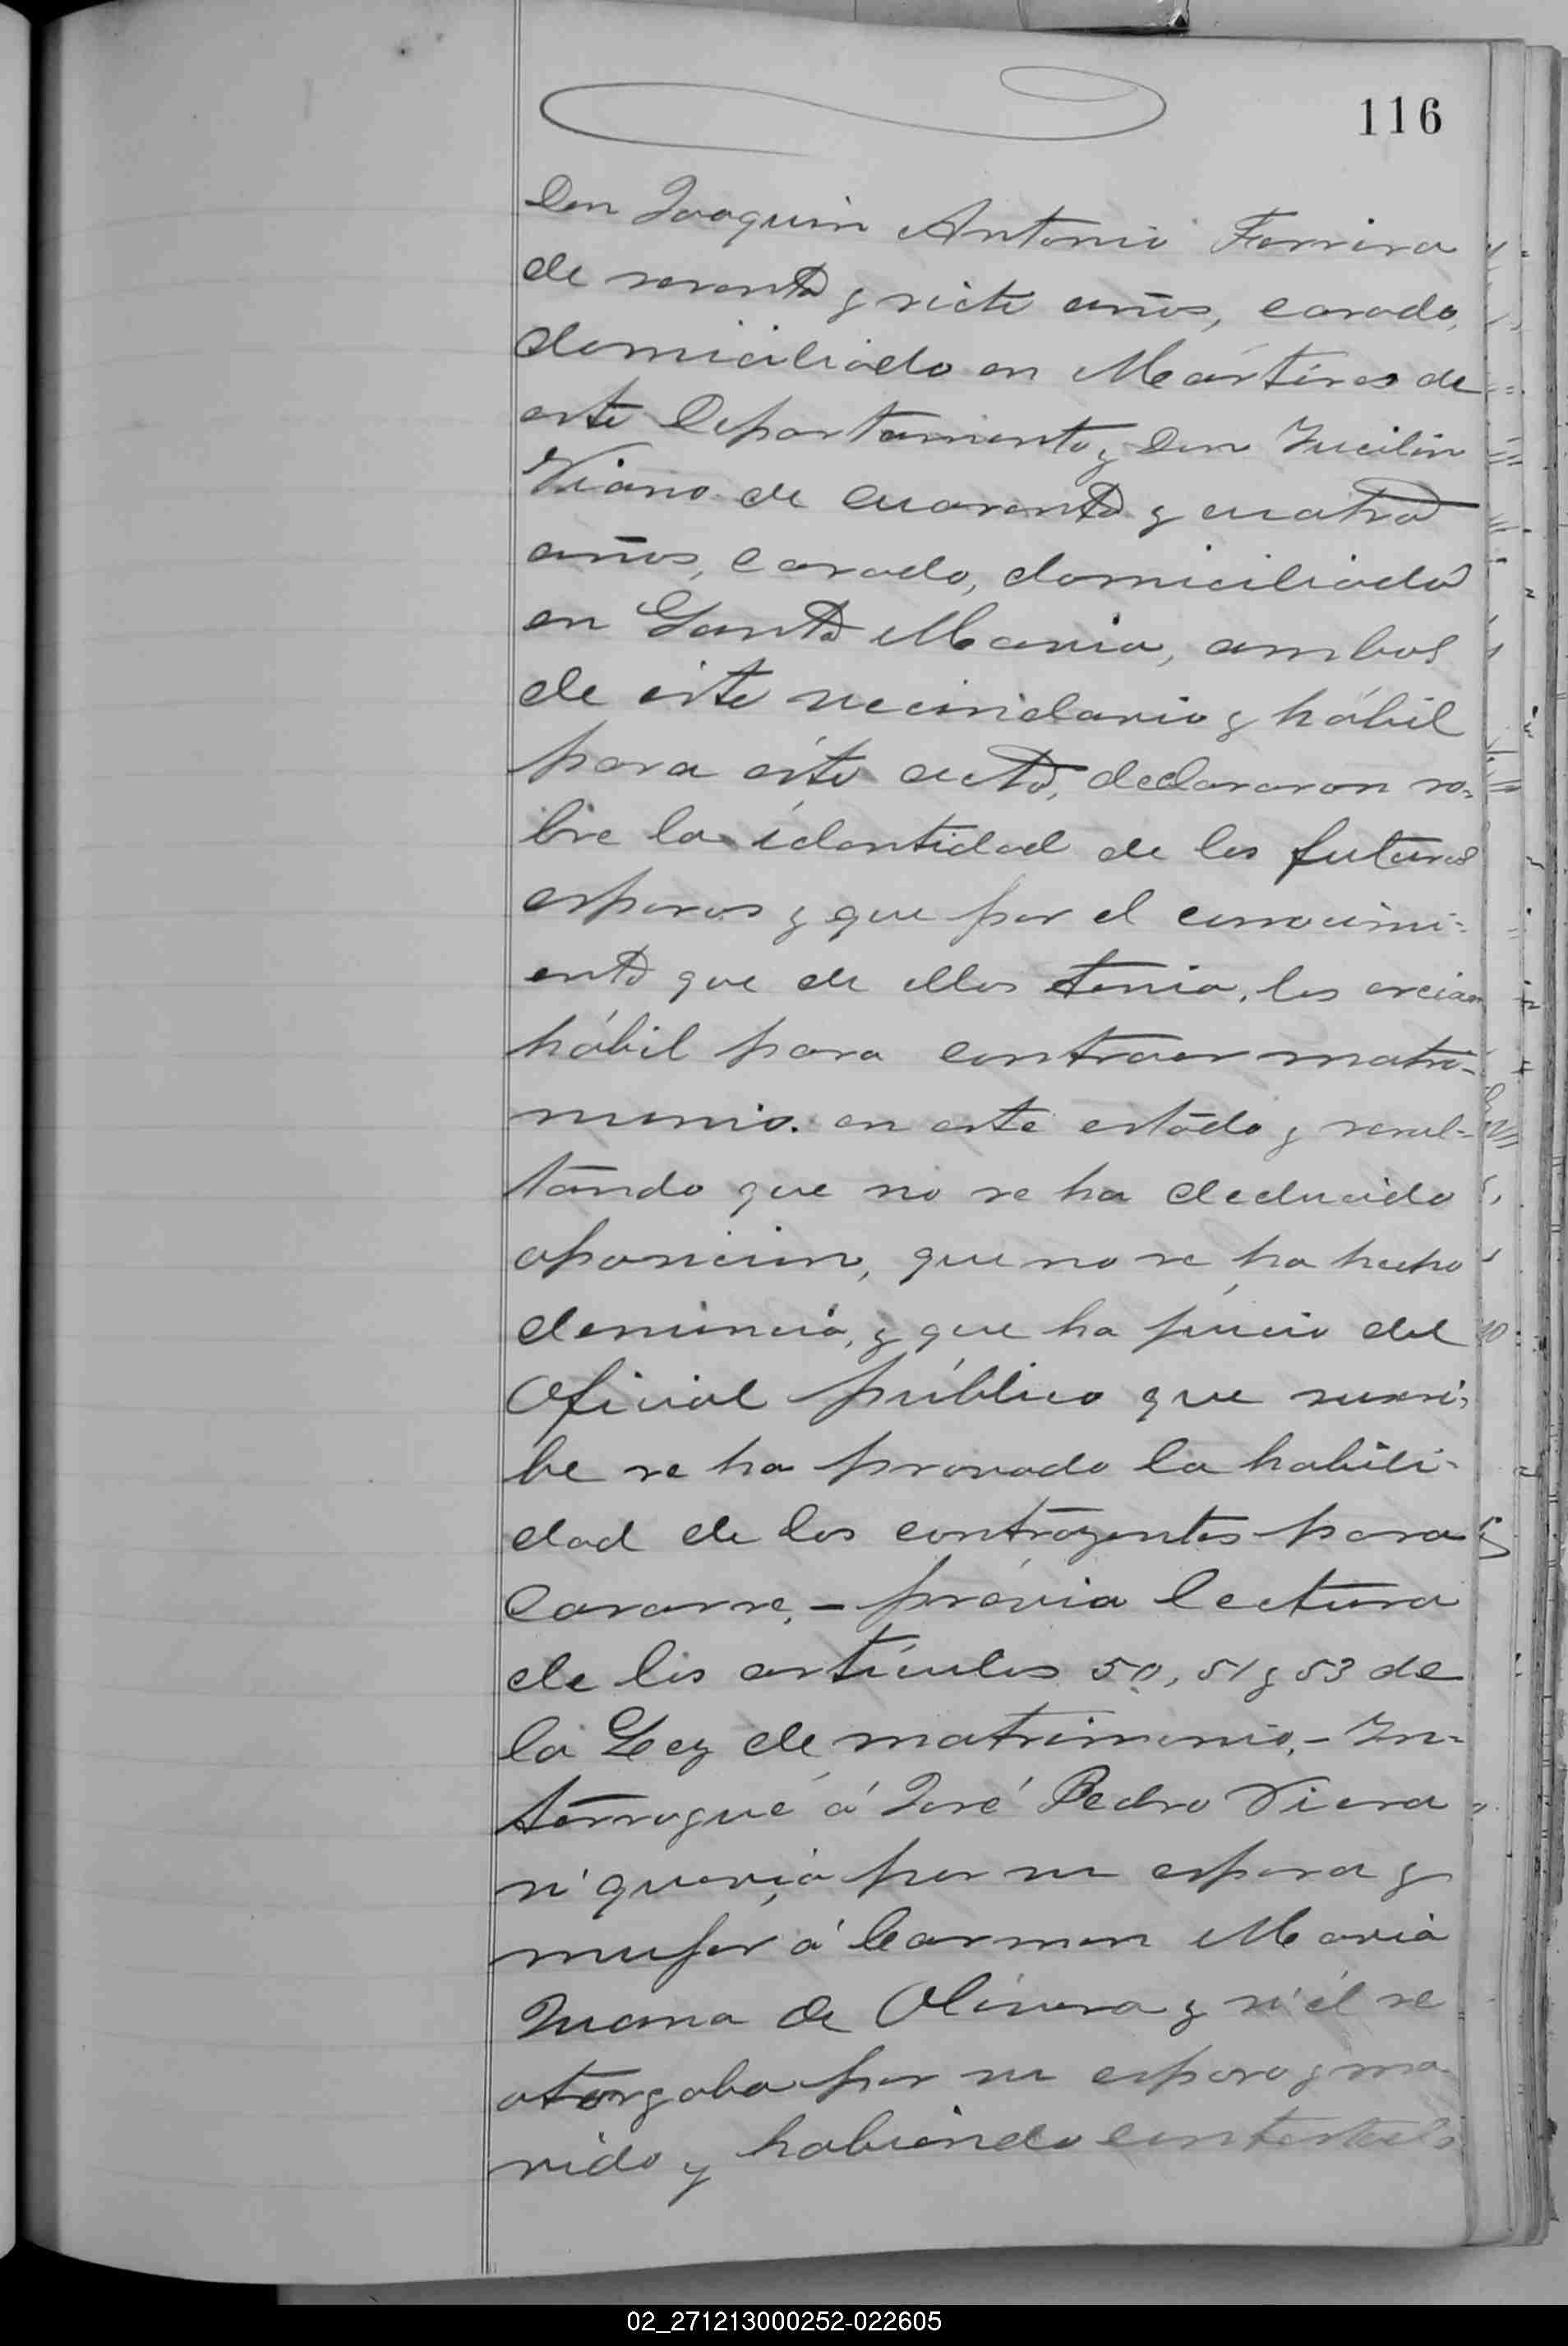 116
Don Joaquin Antonio Ferreira
de sesenta y siete años, casado,
domiciliado en Mártires de
este Departamento y Don
Viano de cuarenta y cuatro
años, casado, domiciliado
en Santa Maria, ambos
de este vecindario y hábil
para éste acto, declararon so-
bre la identidad de los futuros
esposos y que por el conocimi-
ento que de ellos tenia, los creian
hábil para contraer matri-
monio. en este estado y resul-
tando que no se ha deducido
oposicion, que no se ha hecho
denuncia, y que ha juicio del
Oficial público que suscri-
be se ha provado la habili-
dad de los contrayentes para
casarse. - prévia lectura
de los artículos 50, 51 y 53 de
la Ley de matrimonio. - In-
terrogué á José Pedro Viera
si queria por su esposa y
mujer á Carmen Maria
Juana de Olivera y si él se
otorgaba por su esposo y ma
rido y habiendo contestado
02_271213000252-022605